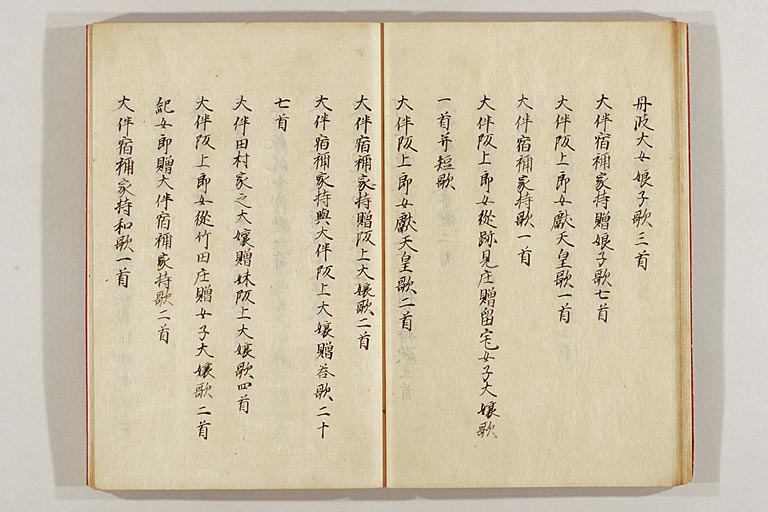 丹波大女娘子歌三首
大伴宿祢家持贈娘子歌七首
大伴阪上郎女獻天皇歌一首
大伴宿祢家持歌一首
大伴阪上郎女從跡見庄贈留宅女子大孃歌
一首并短歌
大伴阪上郎女獻天皇歌二首
大伴宿祢家持贈阪上大孃歌二首
大伴宿祢家持與大伴阪上大孃贈答歌二十
七首
大伴田村家之大孃贈妹阪上大孃歌四首
大伴阪上郎女從竹田庄贈女子大孃歌二首
紀女郎贈大伴宿祢家持歌二首
大伴宿祢家持和歌一首